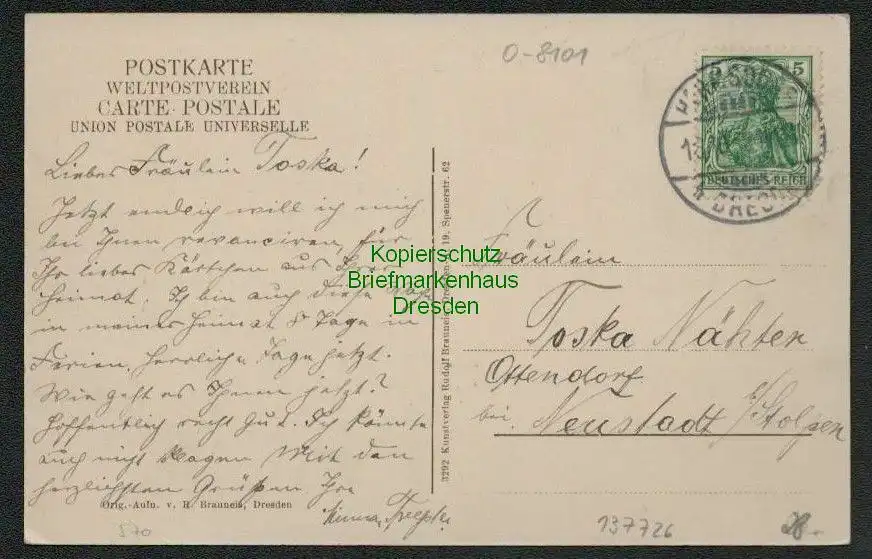 O-8101
POSTKARTE
WELTPOSTVEREIN
CARTE POSTALE
UNION POSTALE UNIVERSELLE
5
DEUTSCHES REICH
Liebes Fräulein Toska!
Jetzt endlich will ich mich
bei Ihnen revanciren, für
Ihr liebes Kärtchen aus Ihrer
Heimat. Ich bin auch diese
in meiner Heimat 8 Tage in
Ferien. Herrliche Tage jetzt.
Wie geht es Ihnen jetzt?
Hoffentlich recht gut. Ich könnte
auch nicht klagen Mit den
herzlichsten Grüßen Ihre
Orig.-Aufn. v. R. Brauneis, Dresden
3292 Kunstverlag Rudolf Brauneis, Dresden 19, Spenerstr. 62
Fräulein
Toska Nähter
Ottendorf
bei Neustadt i/Stolpen
Kopierschutz
Briefmarkenhaus
Dresden
870
137726